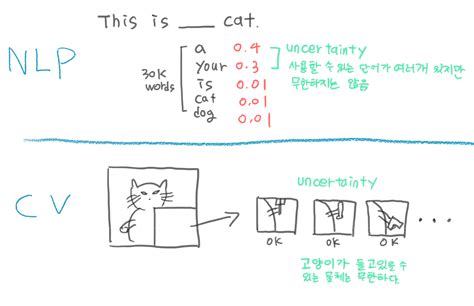 This is ___ cat.
NLP
30K words
a 0.4
your 0.3
is 0.01
cat 0.01
dog 0.01
uncertainty
사용할 수 있는 단어가 여러개 있지만
무한하지는 않음
CV
uncertainty
OK OK OK ...
고양이가 들고있을 수
있는 물체는 무한하다.